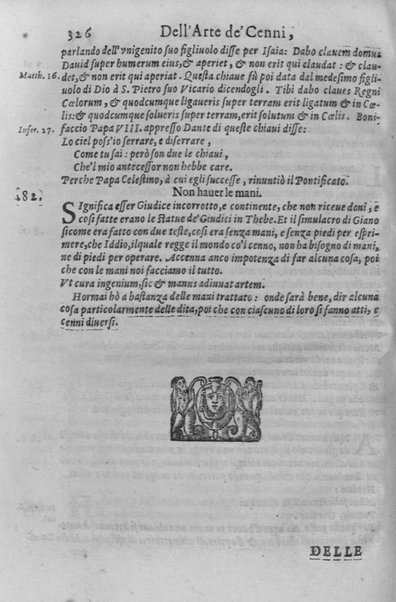 326 Dell'Arte de' Cenni,
parlando dell'vnigenito suo figliuolo disse per Isaia: Dabo clauem domus
Dauid super humerum eius, & aperiet, & non erit qui claudat: & clau-
Matth. 16. det, & non erit qui aperiat. Questa chiaue fù poi data dal medesimo figli-
uolo di Dio à S. Pietro suo Vicario dicendogli. Tibi dabo claues Regni
Cœlorum, & quodcumque ligaueris super terram erit ligatum & in Cœ-
lis: & quodcumque solueris super terram, erit solutum & in Cœlis. Boni-
Infer. 27. faccio Papa VIII. appresso Dante di queste chiaui disse:
Lo ciel poss'io serrare, e diserrare,
Come tu sai: però son due le chiaui,
Che'l mio antecessor non hebbe care.
Perche Papa Celestino, à cui egli successe, rinuntiò il Pontificato.
282. Non hauer le mani.
SIgnifica esser Giudice incorrotto, e continente, che non riceue doni, e
cosi fatte erano le Statue de' Giudici in Thebe. Et il simulacro di Giano
sicome era fatto con due teste, cosi era senza mani, e senza piedi per espri-
mere, che Iddio, ilquale regge il mondo co'l cenno, non ha bisogno di mani,
ne di piedi per operare. Accenna anco impotenza di far alcuna cosa, poi
che con le mani noi facciamo il tutto.
Vt cura ingenium, sic & manus adiuuat artem.
Hormai hò a bastanza delle mani trattato: onde sarà bene, dir alcuna
cosa particolarmente delle dita, poi che con ciascuno di loro si fanno atti, e
cenni diuersi.
DELLE